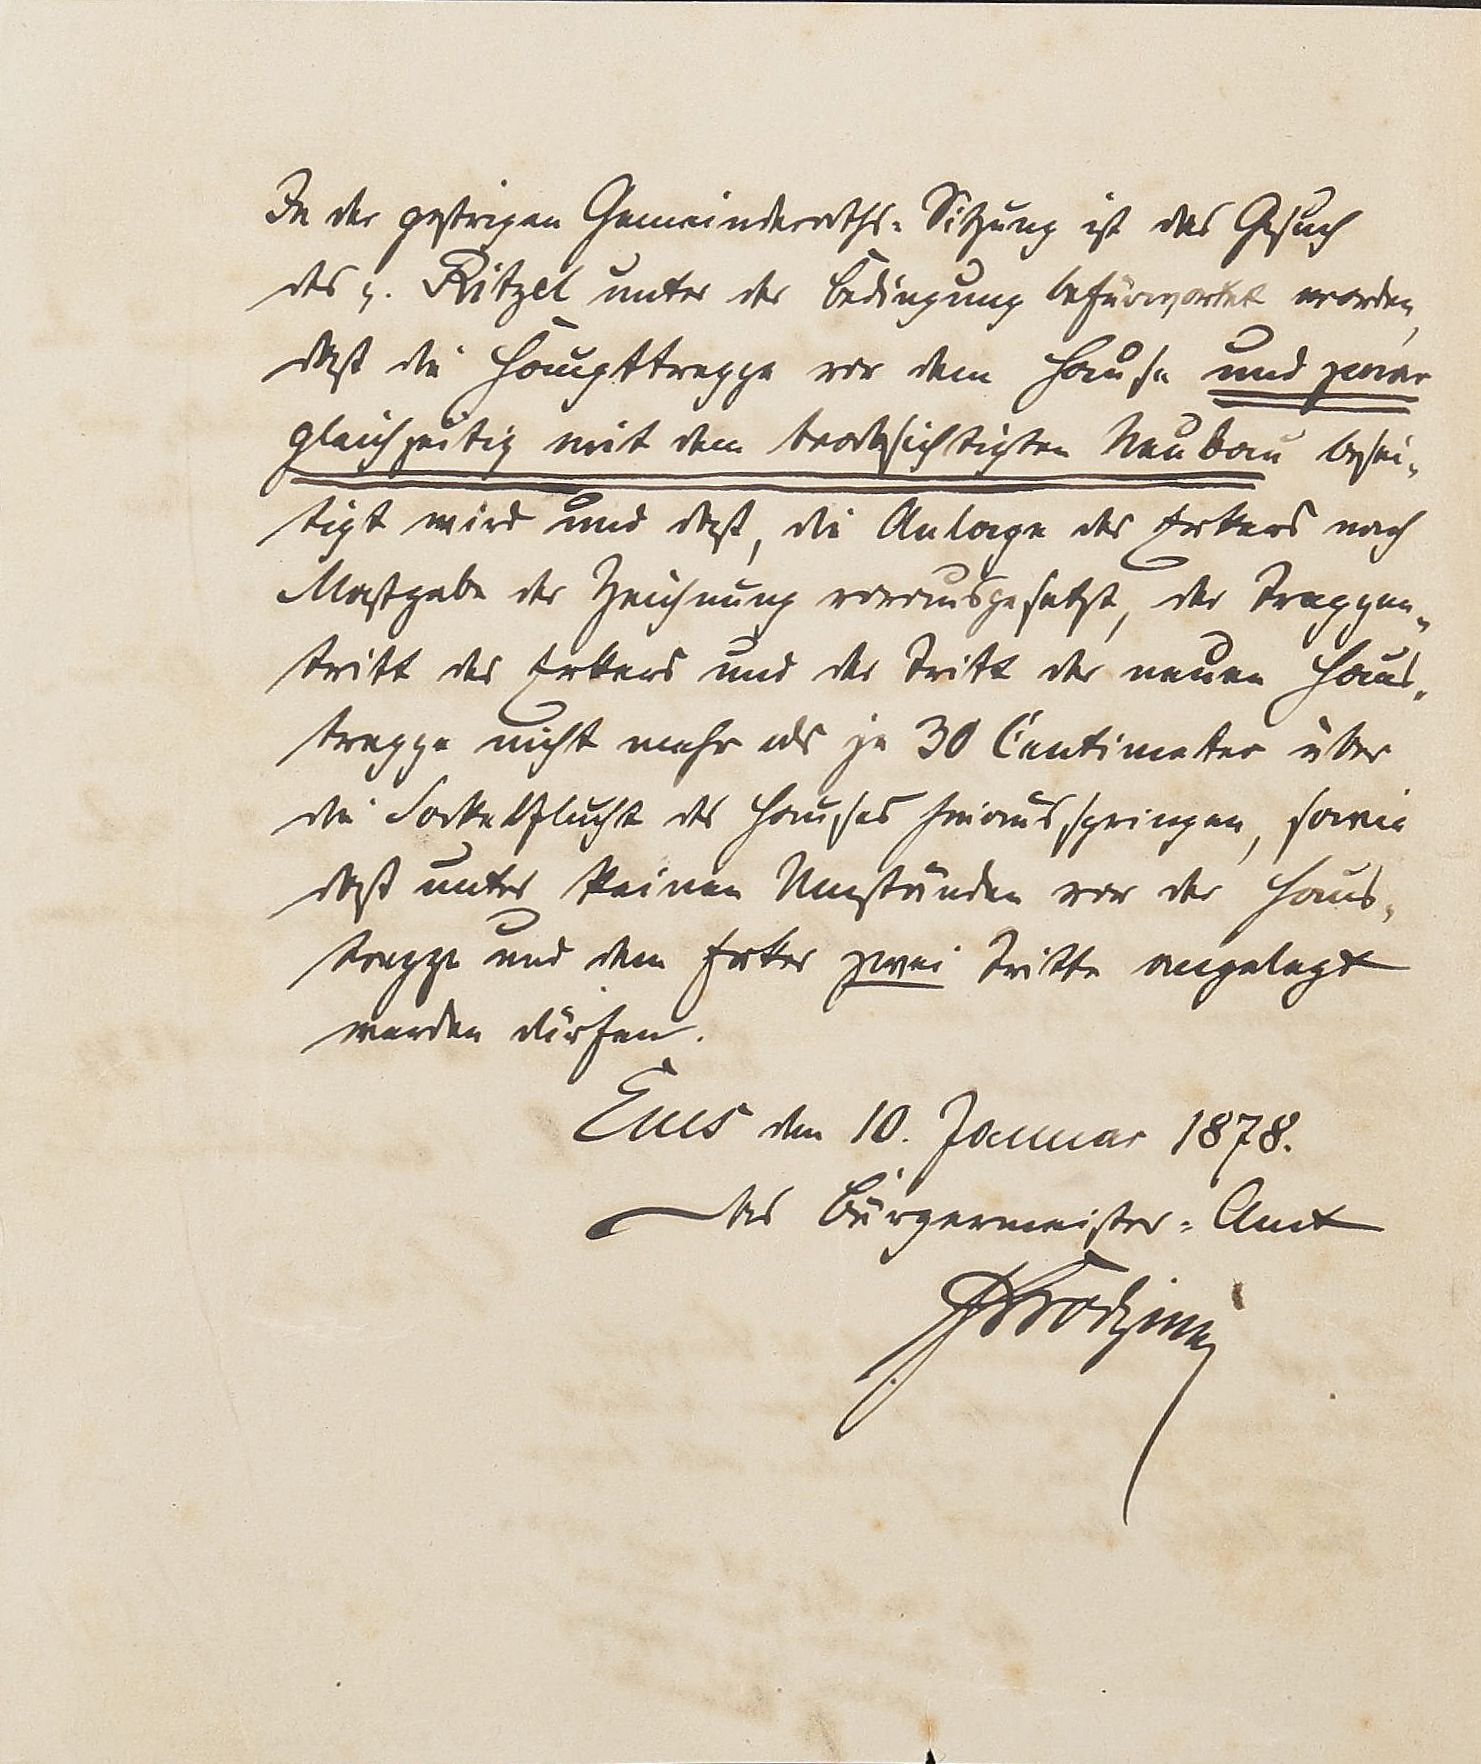 In der gestrigen Gemeinderaths-Sitzung ist das Gesuch
des p. Ritzel unter der Bedingung befürwortet worden,
daß die Haupttreppe vor dem Hause und zwar
gleichzeitig mit dem beabsichtigten Neubau besei-
tigt wird und daß, die Anlage des Erkers nach
Maßgabe der Zeichnung vorausgesetzt, der Treppen-
tritt des Erkers und der Tritt der neuen Haus-
treppe nicht mehr als je 30 Centimeter über
die Sockelflucht des Hauses hinausspringen, sowie
daß unter keinen Umständen vor der Haus-
treppe und dem Erker zwei Tritte angelegt
werden dürfen.
Ems den 10. Januar 1878.
Das Bürgermeister-Amt